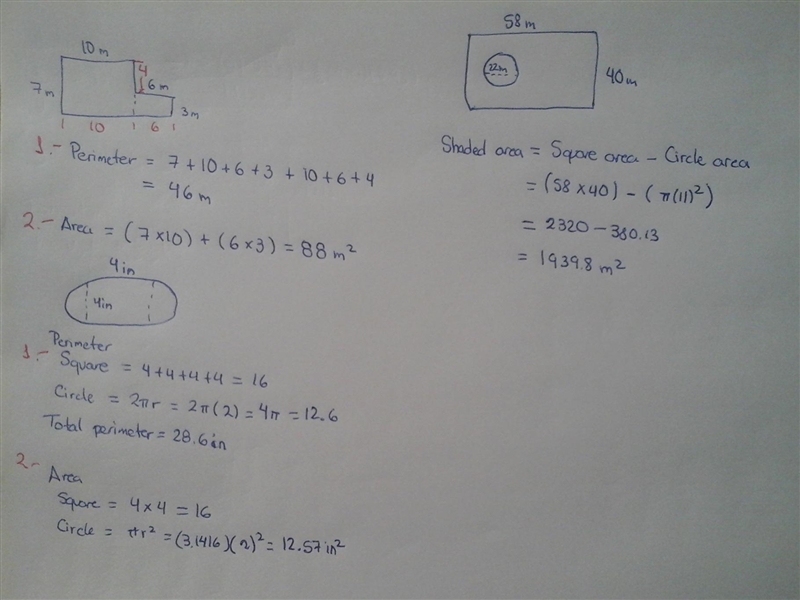 10 m
4
7 m
6 m
3 m
10
6
1.- Perimeter = 7 + 10 + 6 + 3 + 10 + 6 + 4
= 46 m
2.- Area = (7 x 10) + (6 x 3) = 88 m²
4 in
4 in
Perimeter
1.- Square = 4 + 4 + 4 + 4 = 16
Circle = 2πr = 2π(2) = 4π = 12.6
Total perimeter = 28.6 in
2.-
Area
Square = 4 x 4 = 16
Circle = πr² = (3.1416)(2)² = 12.57 in²
58 m
22 m
40 m
Shaded area = Square area - Circle area
= (58 x 40) - (π(11)²)
= 2320 - 380.13
= 1939.8 m²